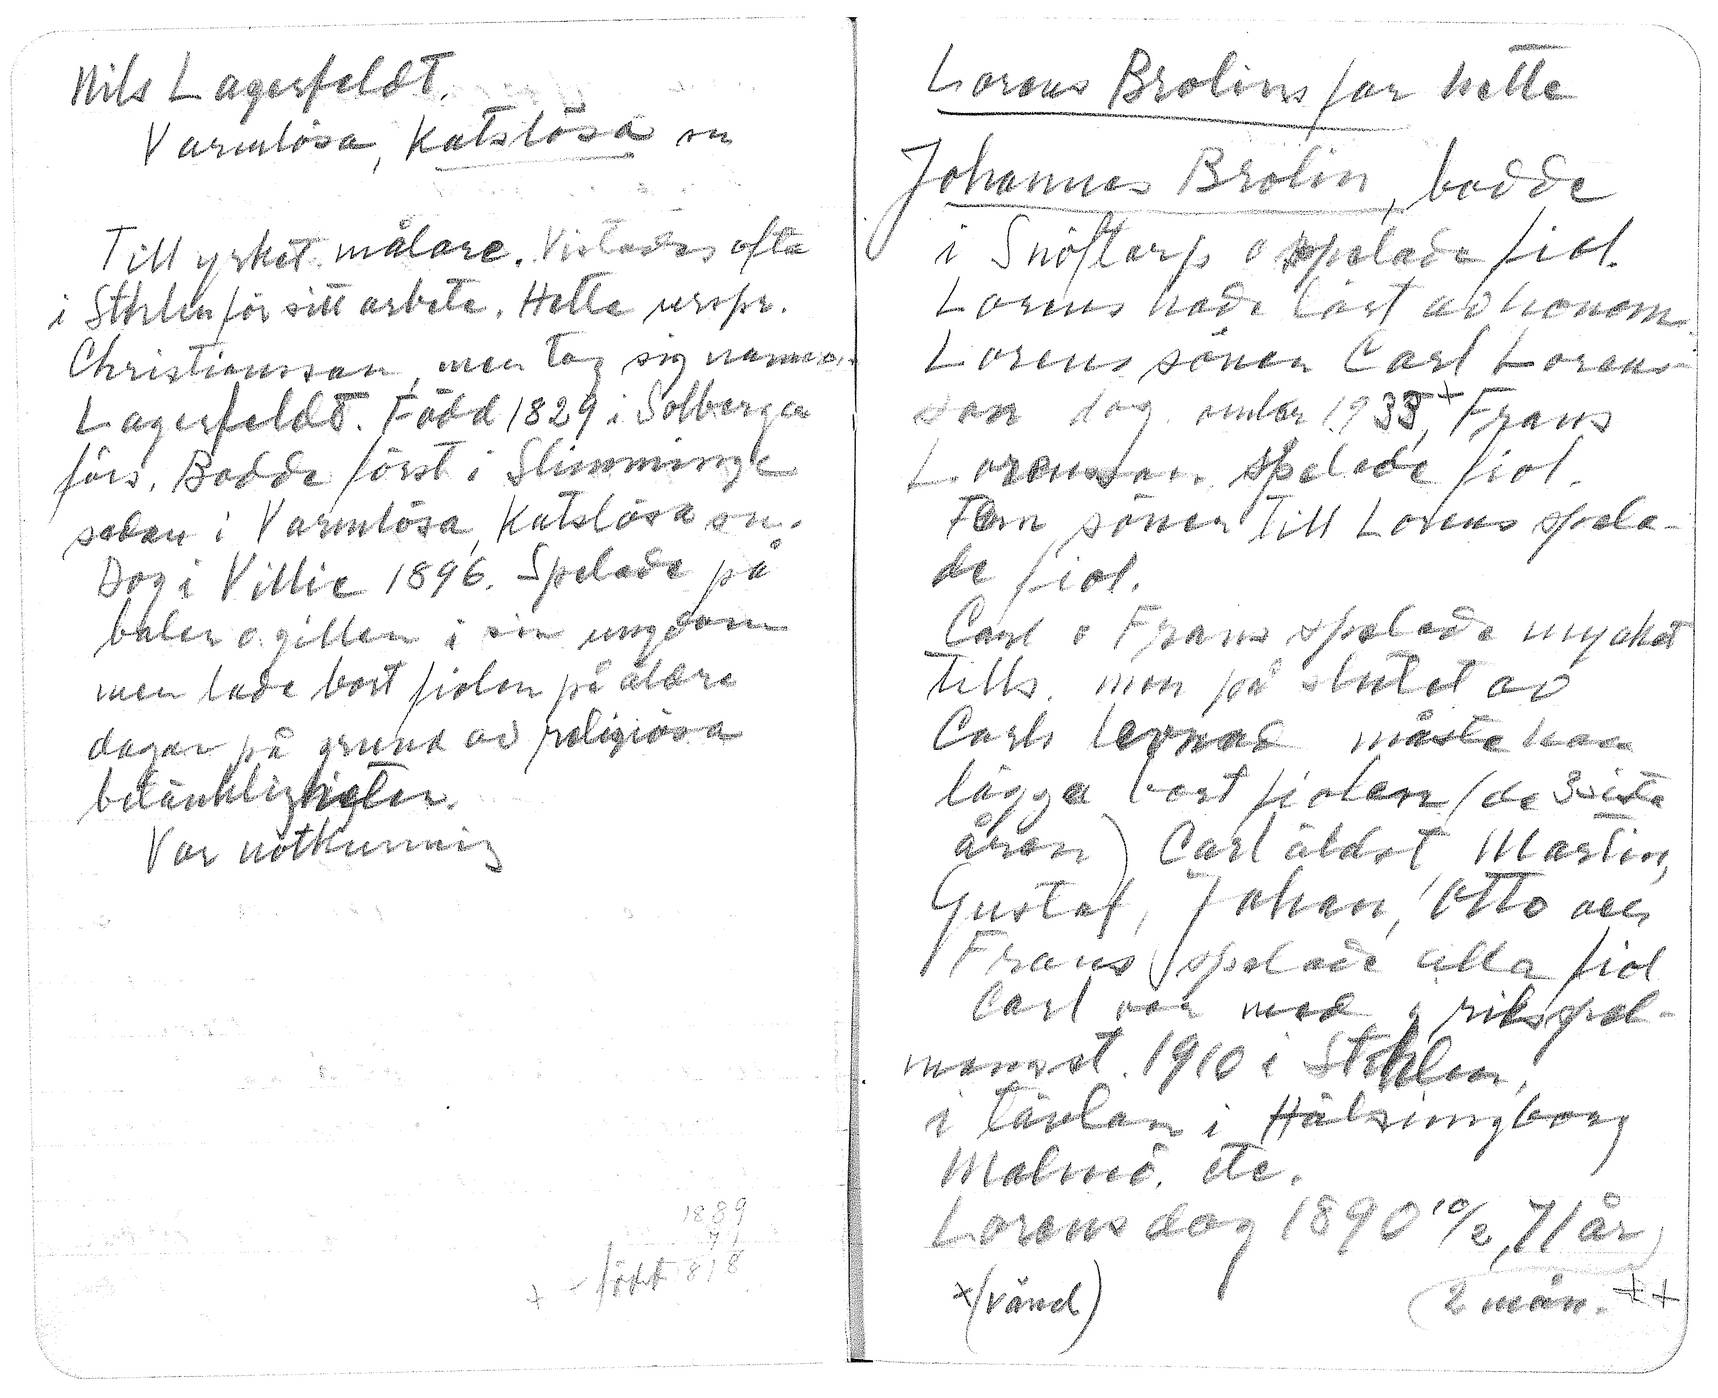 Nils Lagerfeldt.
Varmlösa, Katslösa sn
Till yrket målare. Vistades ofta
i Sthlm för sitt arbete. Hette urspr.
Christiansson, men tog sig namnet
Lagerfeldt. Född 1829 i Solberga
förs. Bodde först i Slimminge
sedan i Varmlösa, Katslösa sn.
Dog i Villie 1896. Spelade på
baler o. gillen i sin ungdom
men lade bort fiolen på äldre
dagar på grund av religiösa
betänkligheter.
Var notkunnig
1889
71
+ - födt 1818
Lorens Brolins far hette
Johannes Brolin, bodde
i Snöftarp o spelade fiol.
Lorens hade lärt av honom.
Lorens söner Carl Lorens-
son dog omkr 1933+, Frans
Lorensson spelade fiol.
Fem söner till Lorens spela-
de fiol.
Carl o Frans spelade mycket
tills. men på slutet av
Carls levnad måste han
lägga bort fiolen (de sista
åren) Carl äldst, Martin,
Gustaf, Johan, Otto och
Frans spelade alla fiol
Carl var med i rikspel-
manst. 1910 i Sthlm,
i tävlan i Hälsingborg
Malmö. etc.
Lorens dog 1890 10/2, 71 år
+(vänd) 2 mån. ++